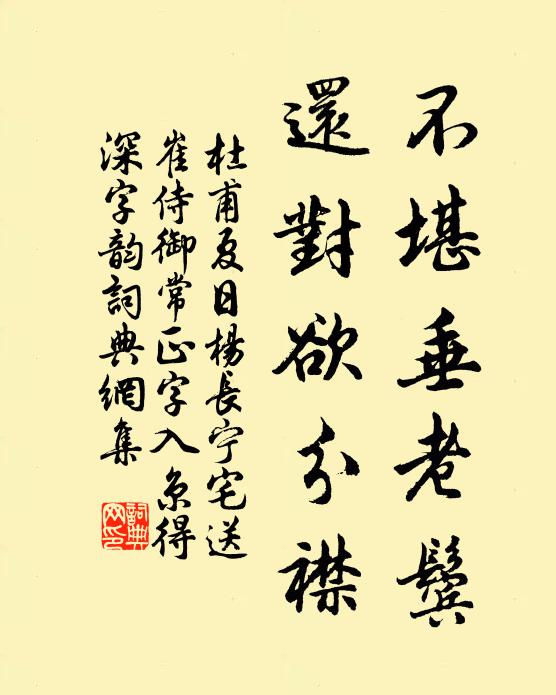 不堪垂老鬢
還對欲分襟
杜甫夏日楊長宁宅送
崔侍御常正字入京得
深字韵詞典網集
詞典网印